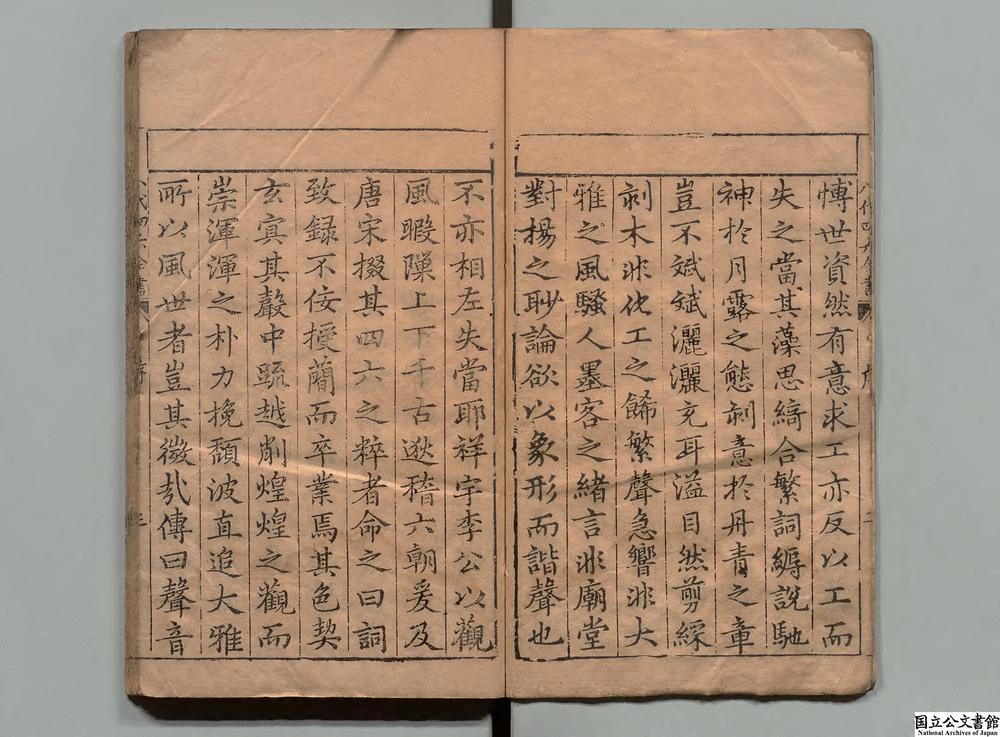 慱世資然有意求工亦反以工而
失之當其藻思綺合繁詞縟說馳
神於月露之態剝意於丹青之章
豈不斌斌灑灑充耳溢目然剪綵
剥木非化工之餙繁聲急響非大
雅之風騷人墨客之緒言非廟堂
對揚之眇論欲以象形而諧聲也
不亦相左失當耶祥宇李公以觀
風暇隟上下千古逖稽六朝爰及
唐宋掇其四六之粹者命之曰詞
致録不佞授蕳而卒業焉其色契
玄寅其聲中䟽越削煌煌之觀而
崇渾渾之朴力挽頽波直追大雅
所以風世者豈其微㢤傳曰聲音
八代四六全書 序
三
国立公文書館
National Archives of Japan